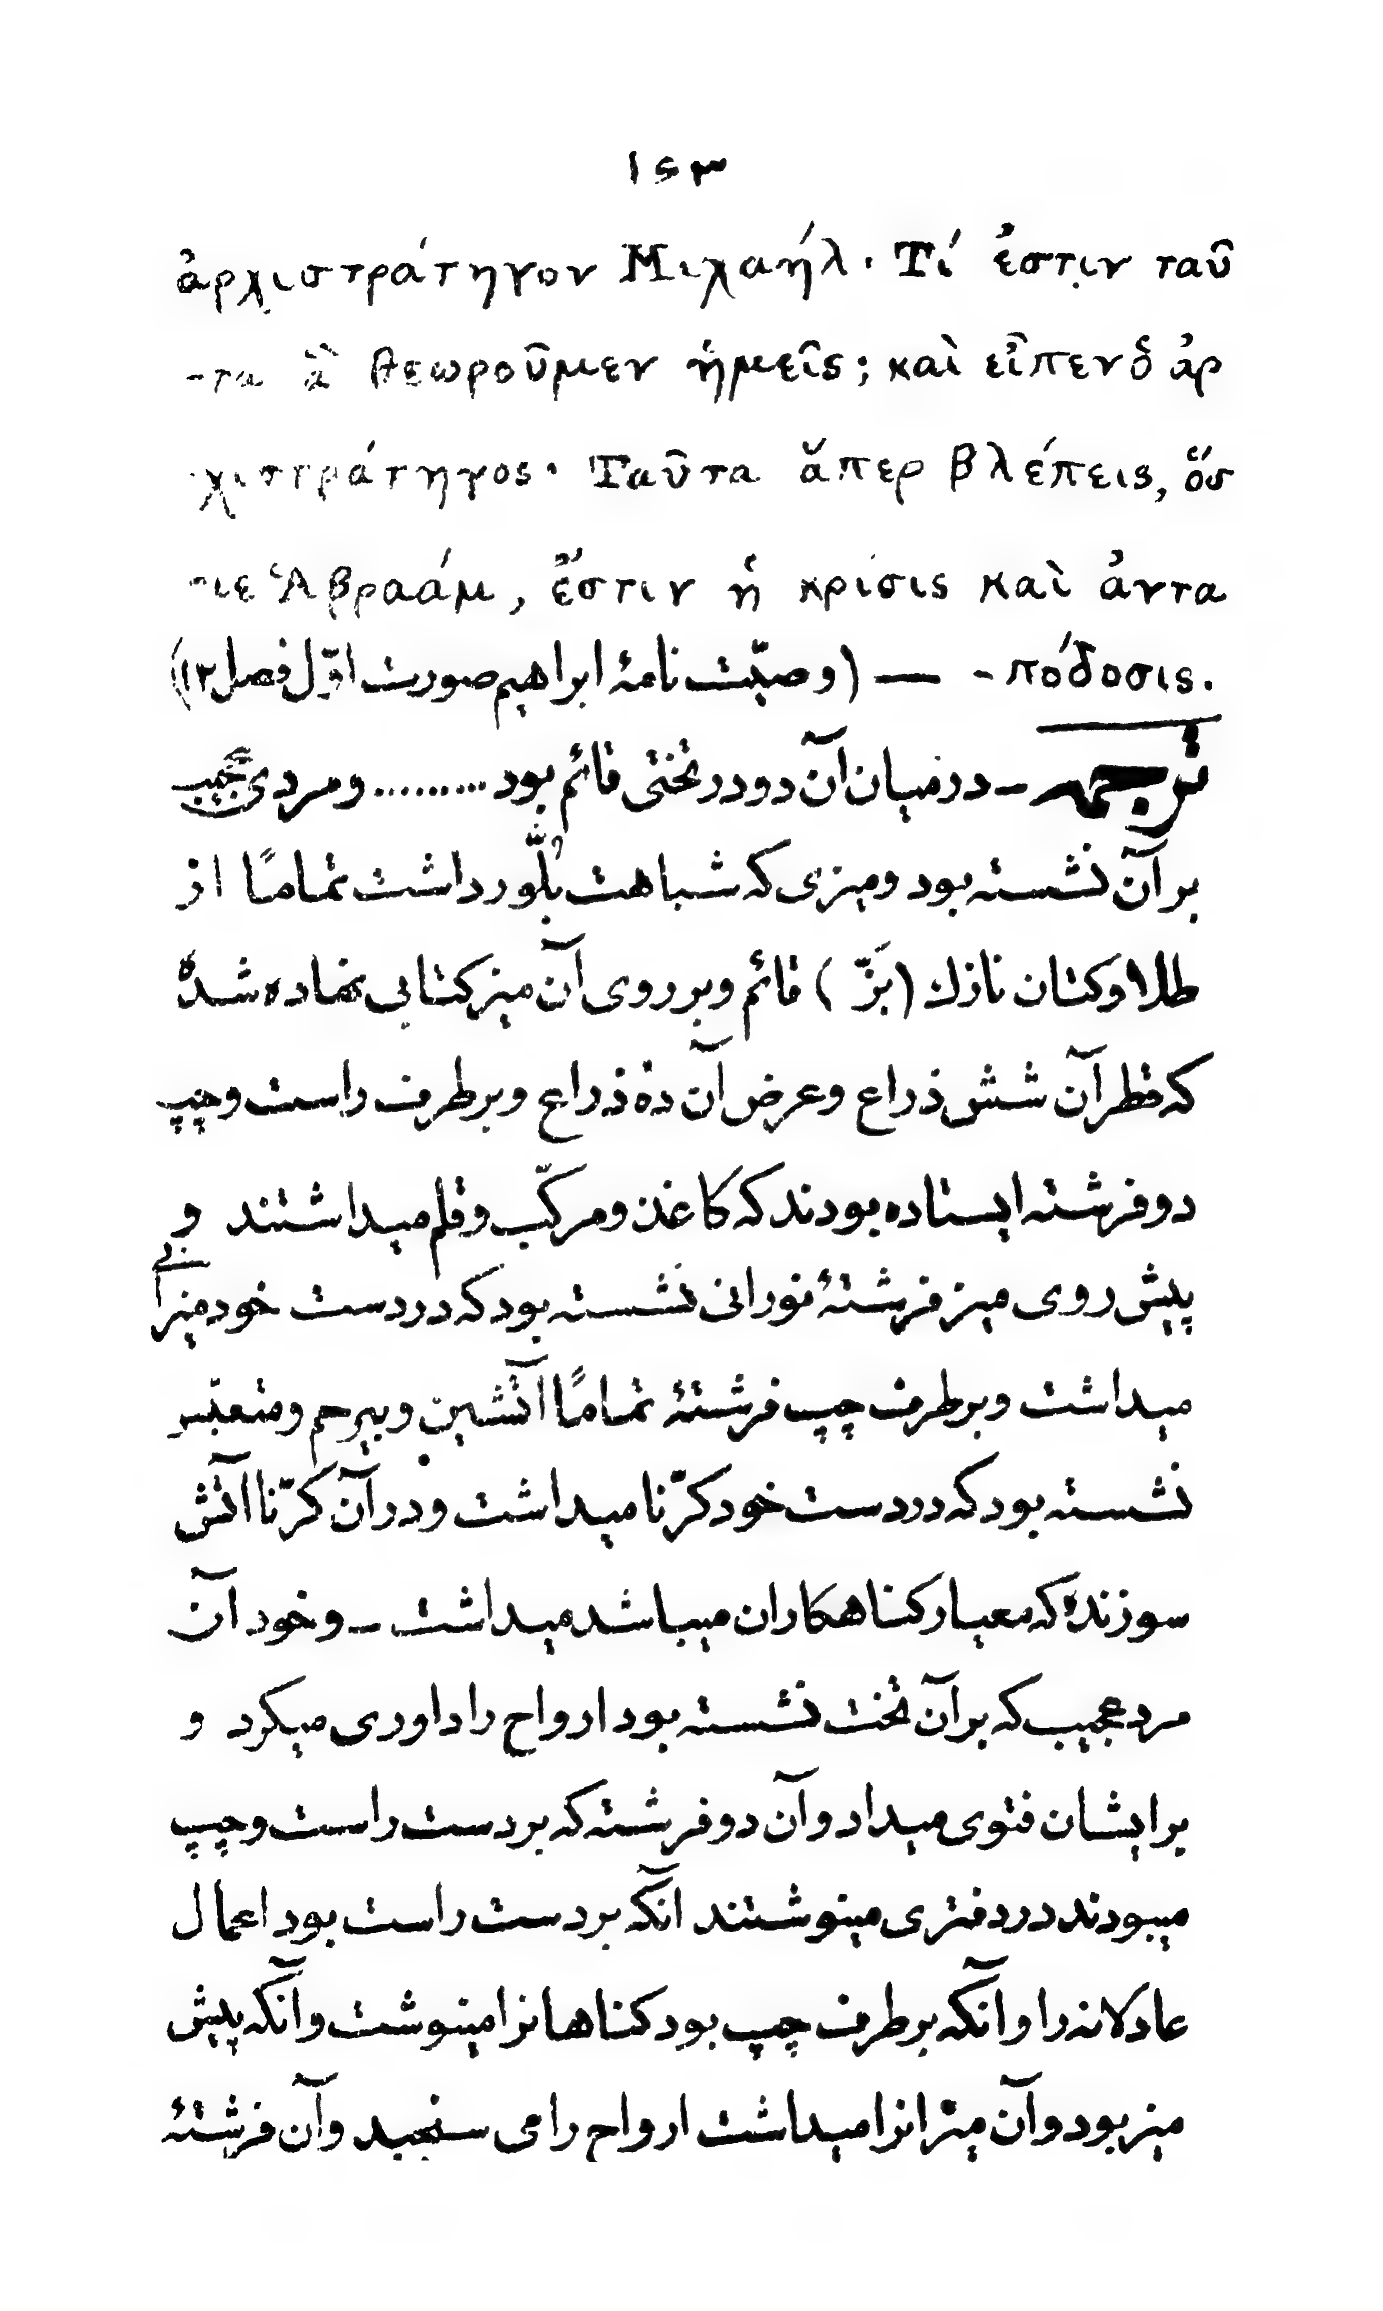 ۱۶۳
ἀρχιστράτηγον Μιχαήλ· Τί ἐστιν ταῦ
-τα ἃ θεωροῦμεν ἡμεῖς; καὶ εἶπεν ὁ ἀρ
χιστράτηγος· Ταῦτα ἅπερ βλέπεις, ὅσ
-ιε Ἀβραάμ, ἔστιν ἡ κρίσις καὶ ἀντα
-πόδοσις. — (وصیّت نامهٔ ابراهیم صورت اوّل فصل ۱۲)
ترجمه - در میان آن دو در تختی قائم بود ......... و مردی عجیب
بر آن نشسته بود و میزی که شباهت بُلَّور داشت تمامًا از
طلا و کتان نازك (بَزّ) قائم و بر روی آن میز کتابی نهاده شده
که قطر آن شش ذراع و عرض آن ده ذراع و بر طرف راست و چپ
دو فرشته ایستاده بودند که کاغذ و مرکّب و قلم میداشتند و
پیش روی میز فرشتهٔ نورانی نشسته بود که در دست خود میزانی
میداشت و بر طرف چپ فرشتهٔ تمامًا آتشین و بیرحم و متعبّس
نشسته بود که در دست خود کرّنا میداشت و در آن کرّنا آتش
سوزنده که معیار کناهکاران میباشد میداشت - و خود آن
مرد عجیب که بر آن تخت نشسته بود ارواح را داوری میکرد و
برایشان فتوی میداد و آن دو فرشته که بر دست راست و چپ
میبودند در دفتری مینوشتند انکه بر دست راست بود اعمال
عادلانه را و آنکه بر طرف چپ بود کناهانرا مینوشت و آنکه پیش
میز بود و آن میزانرا میداشت ارواح را می سنجید و آن فرشتهٔ